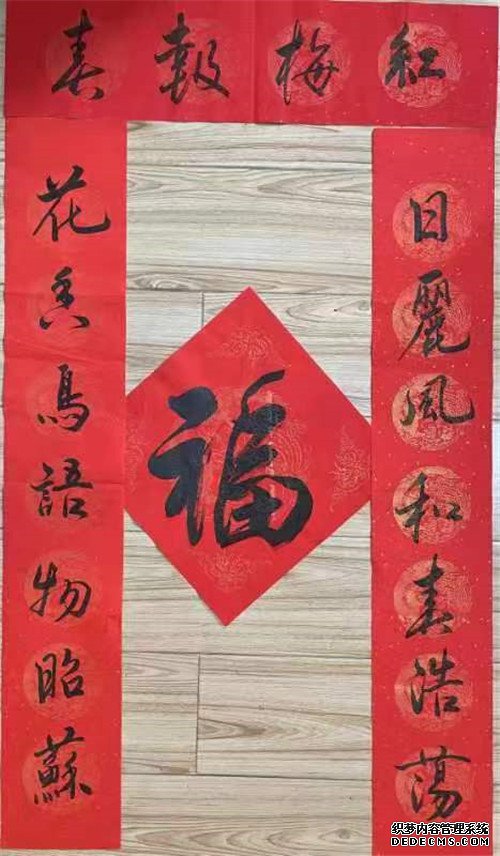 红梅報春
日麗風和春浩蕩
花香鳥語物昭蘇
福
织梦内容管理系统
DEDECMS.COM